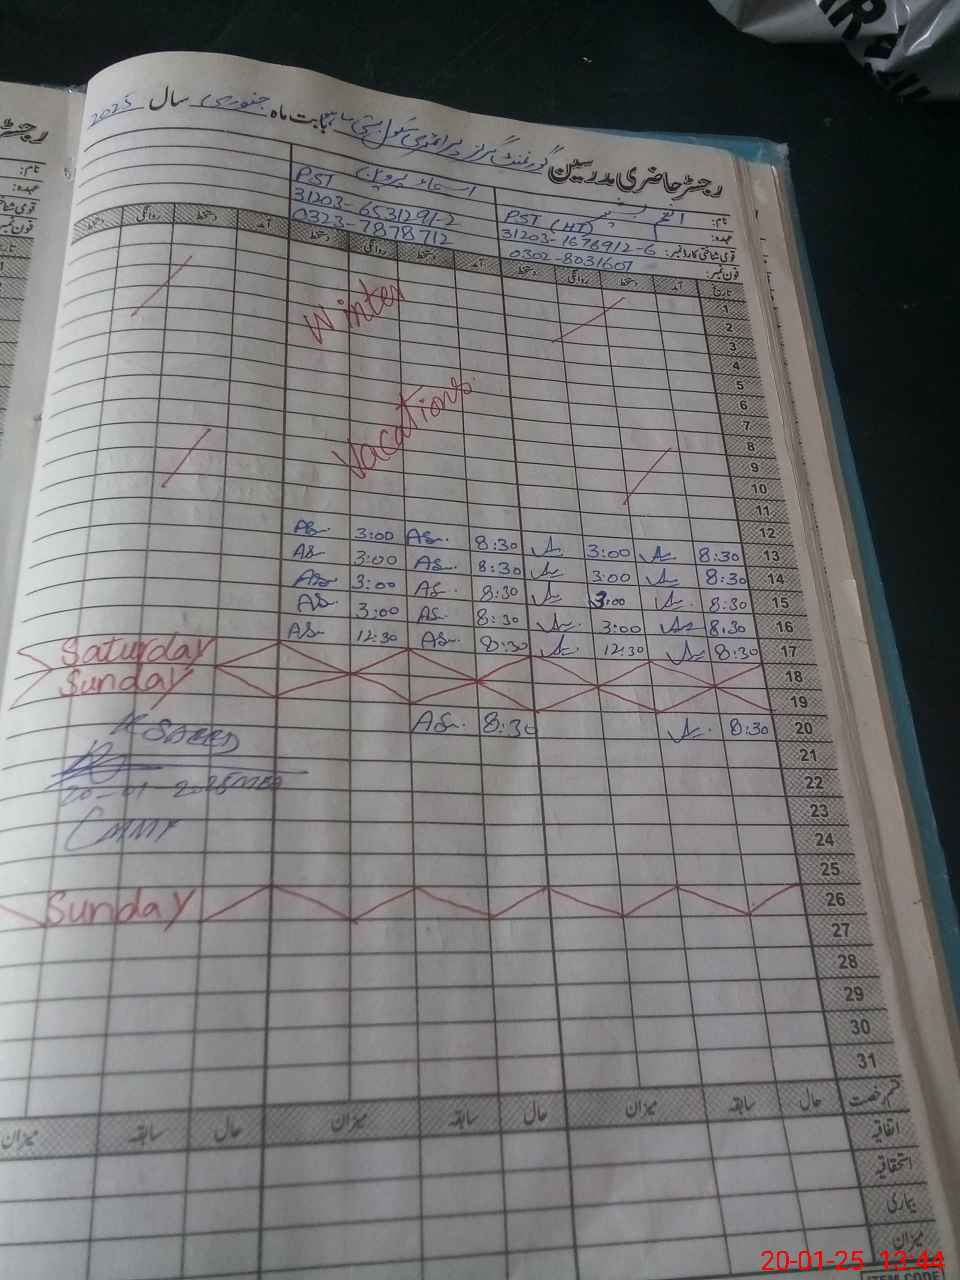 رجسٹر حاضری مدرسین گورنمنٹ گرلز پرائمری سکول بستی بابت ماہ جنوری سال 2025
نام:
عہدہ: PST (HT) PST
قومی شناختی کارڈ نمبر: 31203-1676912-6 31203-6531291-2
فون نمبر: 0302-8031607 0323-7878712
تاریخ آمد دستخط روانگی دستخط آمد دستخط روانگی دستخط آمد دستخط روانگی دستخط
1
2
3
4
5
6
7
8
9
10
11
12
Winter
Vacations
13 8:30 3:00 8:30 AS. 3:00 AS
14 8:30 3:00 8:30 AS. 3:00 AS
15 8:30 3:00 8:30 AS. 3:00 AS
16 8:30 3:00 8:30 AS. 3:00 AS
17 8:30 12:30 8:30 AS. 12:30 AS
18 Saturday
19 Sunday
20 8:30 8:30 AS.
21
22
23
24
25
20-01-2025
26 Sunday
27
28
29
30
31
قسم رخصت حال سابقہ میزان حال سابقہ میزان حال سابقہ میزان
اتفاقیہ
استحقاقیہ
بیماری
میزان
20-01-25 13:44